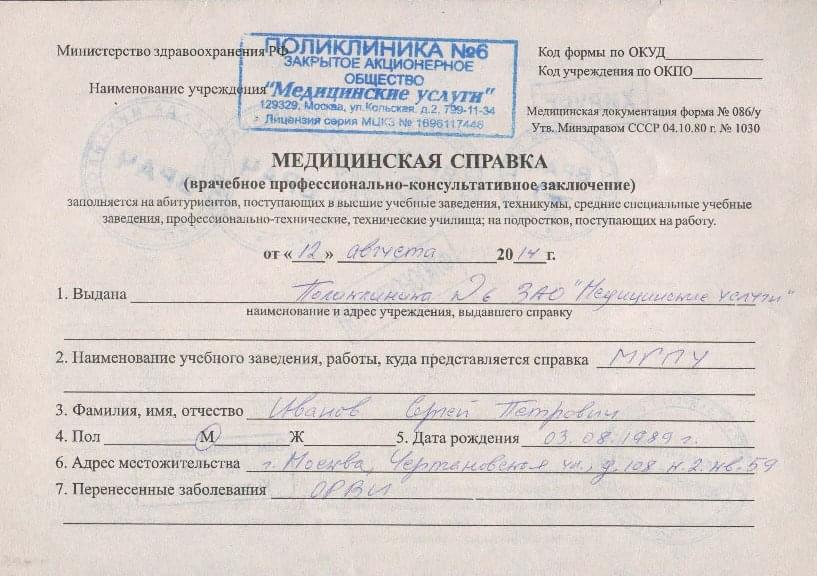 Министерство здравоохранения РФ
ПОЛИКЛИНИКА №6
ЗАКРЫТОЕ АКЦИОНЕРНОЕ
ОБЩЕСТВО
"Медицинские услуги"
129329, Москва, ул.Кольская, д.2, 799-11-34
Лицензия серия МЦКЗ № 1696117446
Наименование учреждения
Код формы по ОКУД
Код учреждения по ОКПО
Медицинская документация форма № 086/у
Утв. Минздравом СССР 04.10.80 г. № 1030
МЕДИЦИНСКАЯ СПРАВКА
(врачебное профессионально-консультативное заключение)
заполняется на абитуриентов, поступающих в высшие учебные заведения, техникумы, средние специальные учебные
заведения, профессионально-технические, технические училища; на подростков, поступающих на работу.
от « 12 » августа 2014 г.
1. Выдана Поликлиника № 6 ЗАО "Медицинские услуги"
наименование и адрес учреждения, выдавшего справку
2. Наименование учебного заведения, работы, куда представляется справка МГПУ
3. Фамилия, имя, отчество Иванов Сергей Петрович
4. Пол М Ж 5. Дата рождения 03.08.1989 г.
6. Адрес местожительства г. Москва, Чертановская ул., д.108 к.2. кв.59
7. Перенесенные заболевания ОРВИ